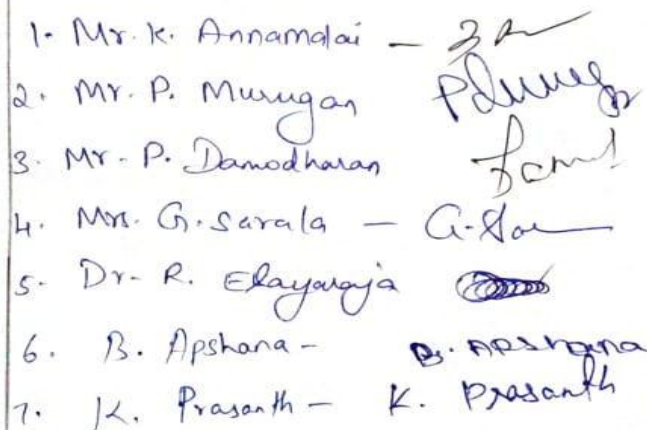 1. Mr. K. Annamalai -
2. Mr. P. Murugan
3. Mr. P. Damodharan
4. Mrs. G. Sarala - G. Sar
5. Dr. R. Elayaraja
6. B. Apshana - B. Apshana
7. K. Prasanth - K. Prasanth